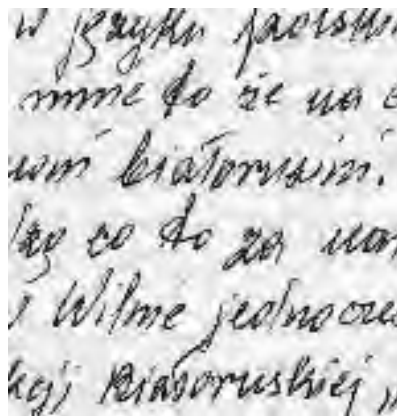 w języku polsk
mnie to że na
białorusini.
co to za
Wilnie jednocze
kcji Białoruskiej „